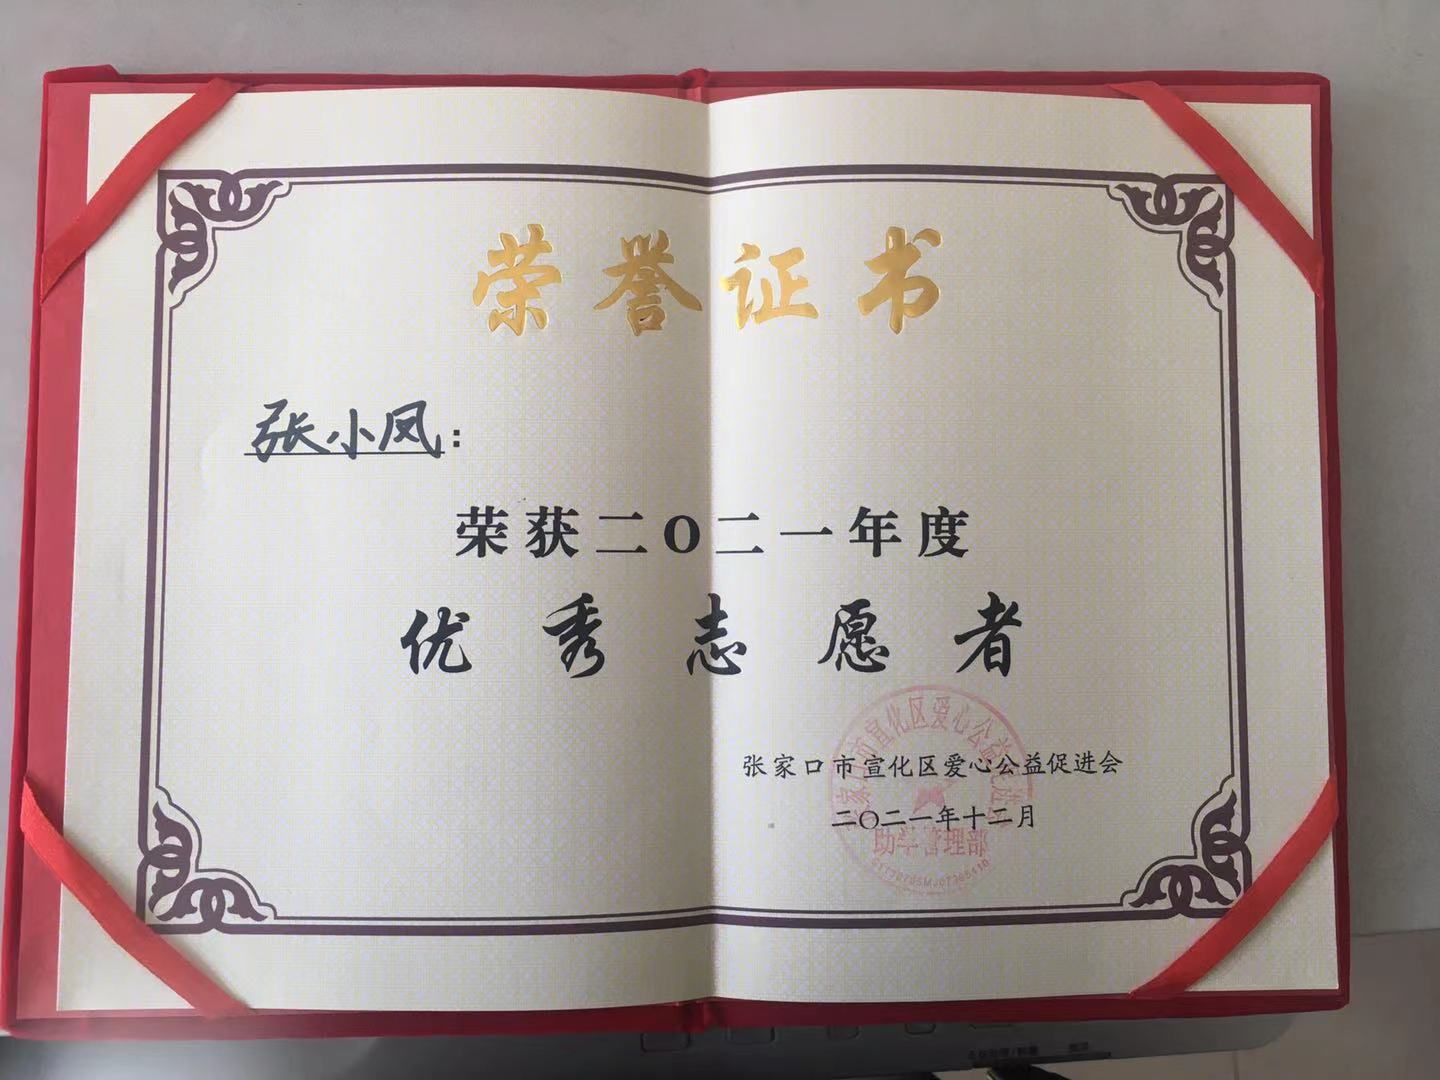 荣誉证书
张小凤:
荣获二〇二一年度
优秀志愿者
张家口市宣化区爱心公益促进会
二〇二一年十二月
助学管理部